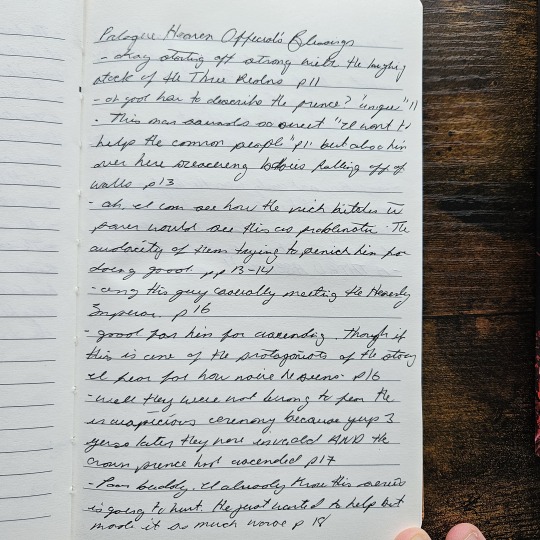 Prologue Heaven Official's Blessings
- okay starting off strong with the laughing
stock of the Three Realms p11
- oh god how to describe the prince? "unique" 11
- This man sounds so sweet "I want to
help the common people" p11 but also him
over here rescuing bodies falling off of
walls p13
- ah, I can see how the rich bitches in
power would see this as problematic. The
audacity of them trying to punish him for
doing good pp 13-14
- omg this guy casually meeting the Heavenly
Emperor. p16
- good for him for ascending. Though if
this is one of the protagonists of the story
I fear for how naive he seems p16
- well they were not wrong to fear the
inauspicious ceremony because yup 3
years later they were invaded AND the
crown prince had ascended p17
- Poor buddy. I already know this series
is going to hurt. He just wanted to help but
made it so much worse p 18